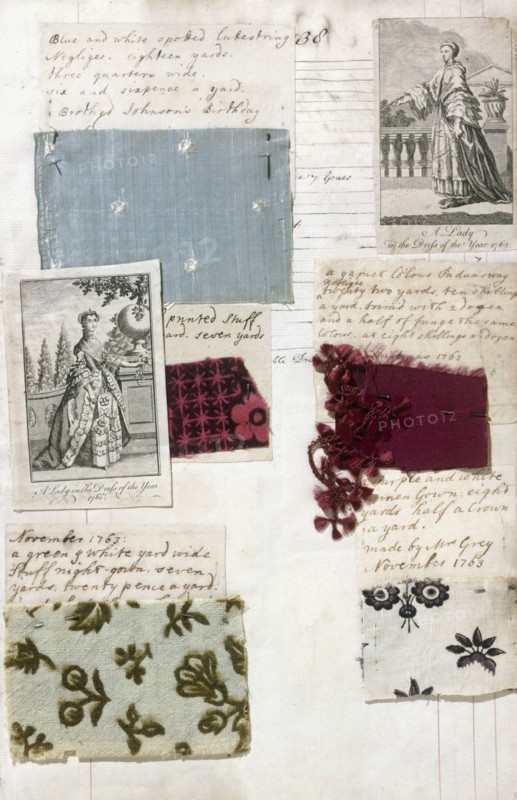 Blue and white spotted Lutestring
Negligee. eighteen yards.
three quarters wide.
six and sixpence a yard.
Brothyd Johnson's Birthday
38
A Lady
in the Dress of the Year 1762
PHOTO12
printed Stuff
ard. seven yards
a garnet Colour Paduasway
twenty two yards, ten shillings
a yard. trim'd with 2 dozen
and a half of fringe the same
Colour. at eight shillings a dozen
1762
PHOTO12
A Lady in the Dress of the Year
purple and white
linnen Gown. eight
yards half a Crown
a yard.
made by Mrs Grey
November 1763
November 1763:
a green & white yard wide
Stuff night-gown. seven
yards. twenty pence a yard.